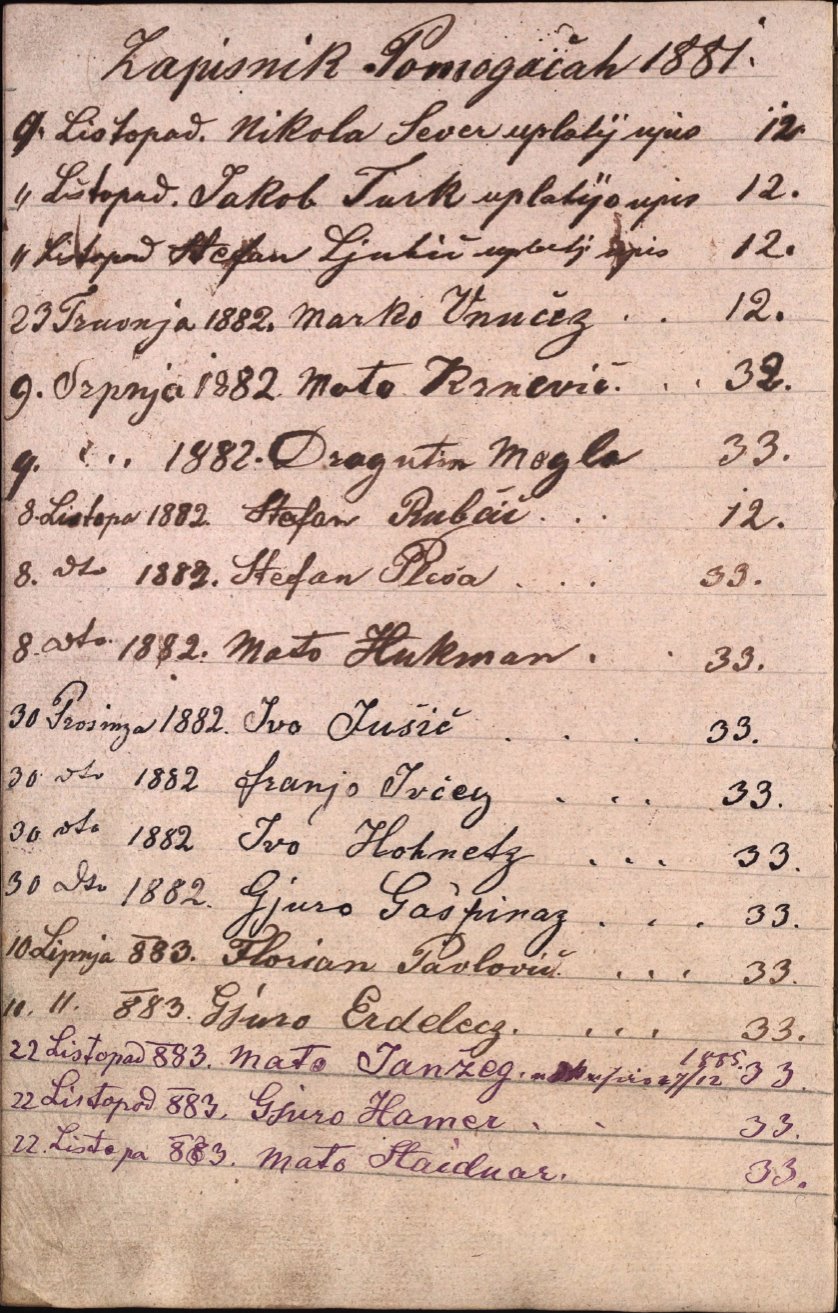 Zapisnik Pomogačah 1881.
9. Listopad. Nikola Sever uplatij upis 12.
" Listopad. Jakob Turk uplatijo upis 12.
" Listopad Stefan Ljubič uplatij upis 12.
23 Travnja 1882. Marko Vnučez . . 12.
9. Srpnja 1882 Mato Krnevič. . . 32.
9. " .. 1882. Dragutin Mogla 33.
8. Listopa 1882. Stefan Rubčić . . . 12.
8. dto 1882. Stefan Plesa . . . 33.
8. dto 1882. Mato Hukman . . 33.
30 Prosinza 1882. Ivo Jušič . . . 33.
30 dto 1882 Franjo Ivčez . . . 33.
30 dto 1882 Ivo Hohnetz . . . 33.
30 Dto 1882. Gjuro Gašpinaz . . . 33.
10 Lipnja 883. Florian Pavlovič . . . 33.
10. 11. 883. Gjuro Erdelecz. . . . 33.
22 Listopad 883. Mato Janžeg. 27/12 1885. 33.
22 Listopad 883. Gjuro Hamer . . 33.
22. Listopa 883. Mato Staiduar. 33.